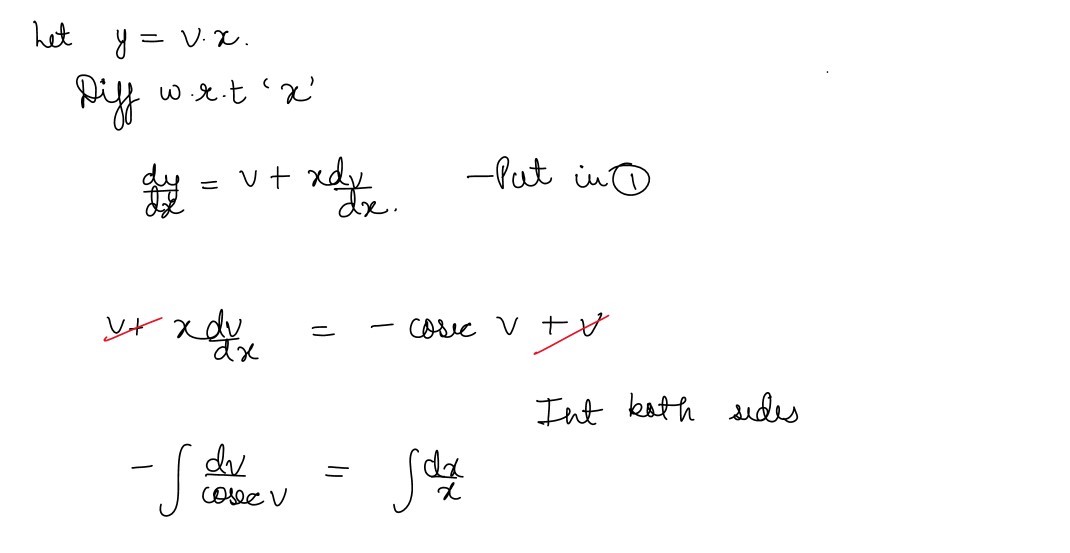 Let y = v.x.
Diff w.r.t 'x'
dy/dx = v + x dv/dx. - Put in ①
v + x dv/dx = - cosec v + v
Int both sides
- ∫ dv/cosec v = ∫ dx/x